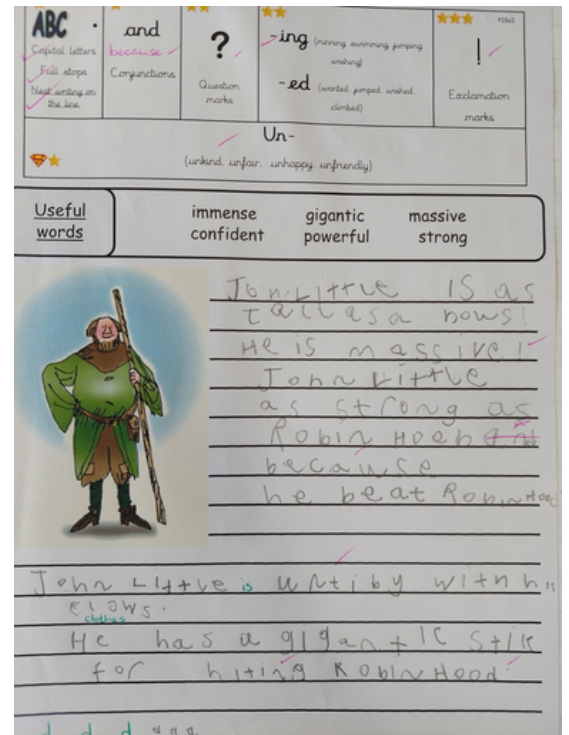 ABC
Capital letters
Full stops
Neat writing on
the line.
and
because
Conjunctions
?
Question
marks
-ing (running swimming jumping
wishing)
-ed (wanted, jumped, wished,
climbed)
!
Exclamation
marks
Un-
(unkind, unfair, unhappy, unfriendly)
Useful
words
immense gigantic massive
confident powerful strong
John Little is as
tall as a hows!
He is massive!
John Little
as strong as
Robin Hoeb
because
he beat Robin Hood
John Little is untiby with his
clows.
clothes
He has a gigantic stik
for hiting Robin Hood